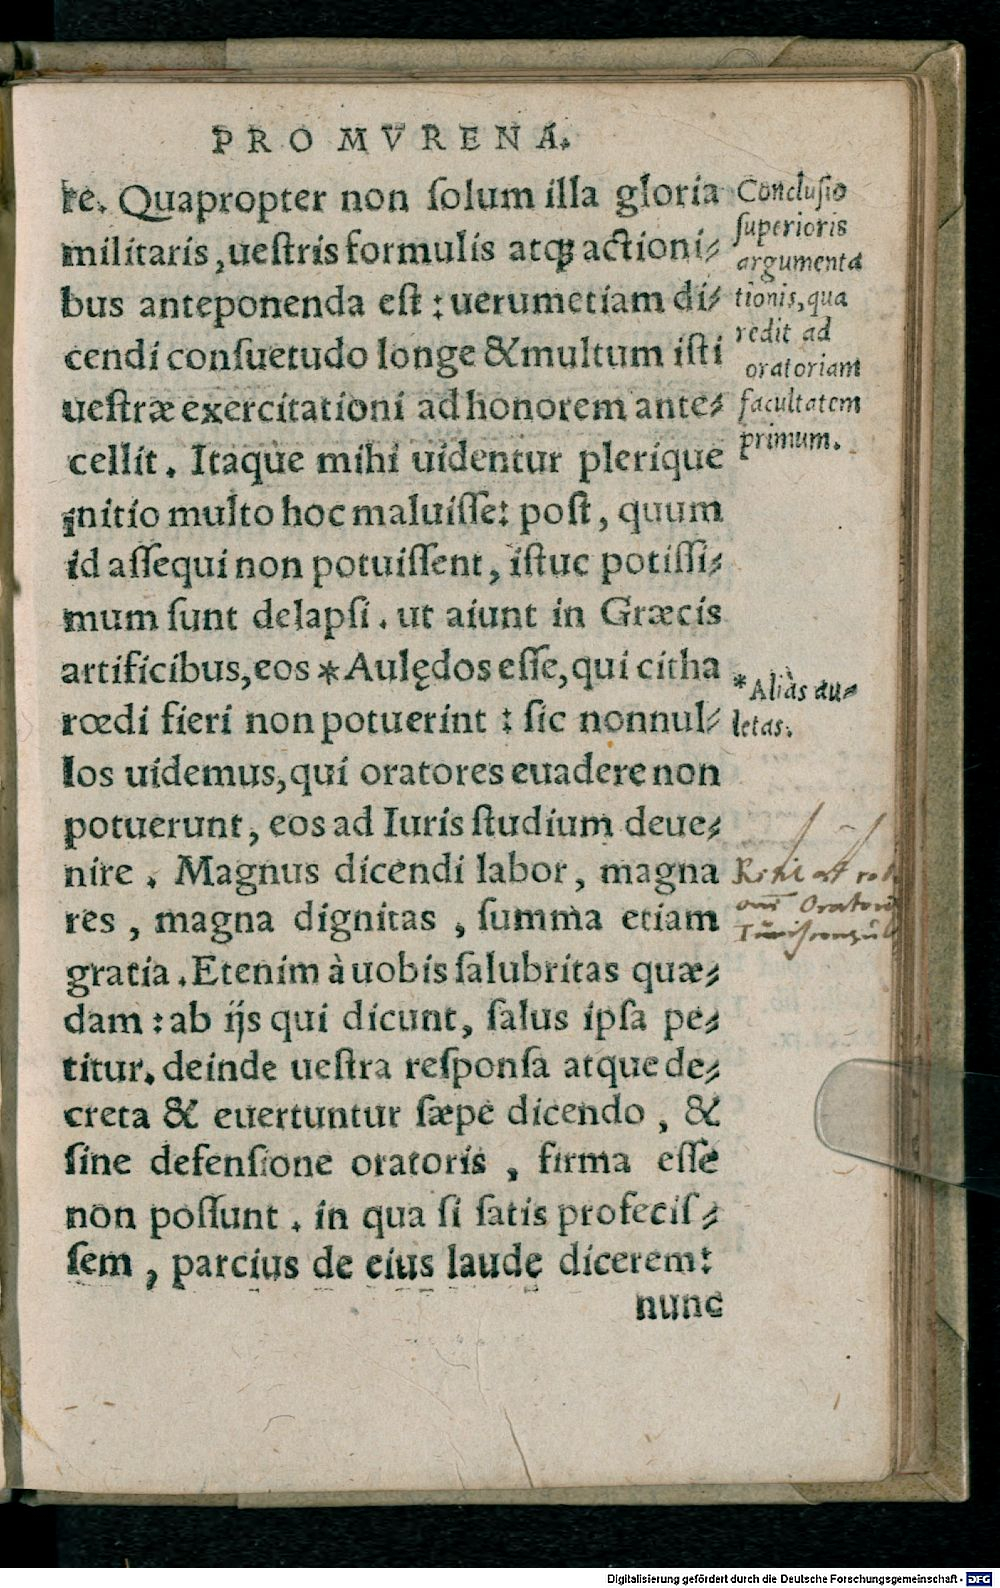 PRO MVRENA.
re. Quapropter non ſolum illa gloria
militaris, ueſtris formulis atq; actioni⸗
bus anteponenda eſt: uerumetiam di⸗
cendi conſuetudo longe & multum iſti
ueſtræ exercitationi ad honorem ante⸗
cellit. Itaque mihi uidentur plerique
initio multo hoc maluiſſe: poſt, quum
id aſſequi non potuiſſent, iſtuc potiſſi⸗
mum ſunt delapſi. ut aiunt in Græcis
artificibus, eos *Aulędos eſſe, qui citha
rœdi fieri non potuerint: ſic nonnul⸗
los uidemus, qui oratores euadere non
potuerunt, eos ad Iuris ſtudium deue⸗
nire. Magnus dicendi labor, magna
res, magna dignitas, ſumma etiam
gratia. Etenim à uobis ſalubritas quæ⸗
dam: ab ijs qui dicunt, ſalus ipſa pe⸗
titur. deinde ueſtra reſponſa atque de⸗
creta & euertuntur ſæpe dicendo, &
ſine defenſione oratoris, firma eſſe
non poſſunt. in qua ſi ſatis profeciſ⸗
ſem, parcius de eius laude dicerem:
nunc
Concluſio
ſuperioris
argumenta
tionis, qua
redit ad
oratoriam
facultatem
primum.
*Aliàs au⸗
letas.
Orator
Digitalisierung gefördert durch die Deutsche Forschungsgemeinschaft - DFG